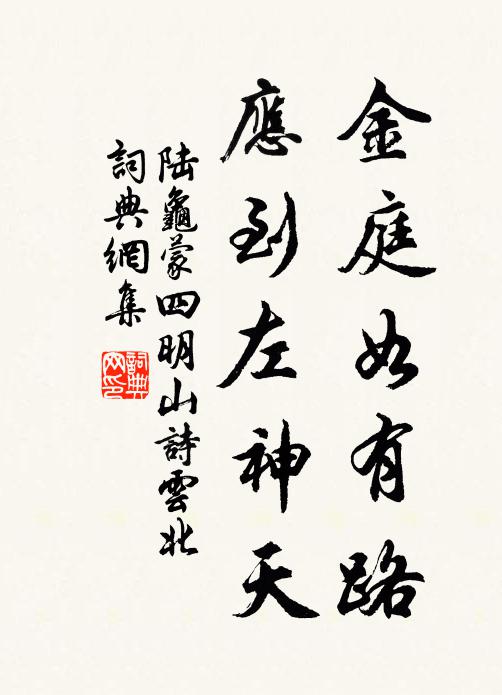 金庭如有路
應到左神天
陸龜蒙四明山詩雲北
詞典網集
詞典
网印